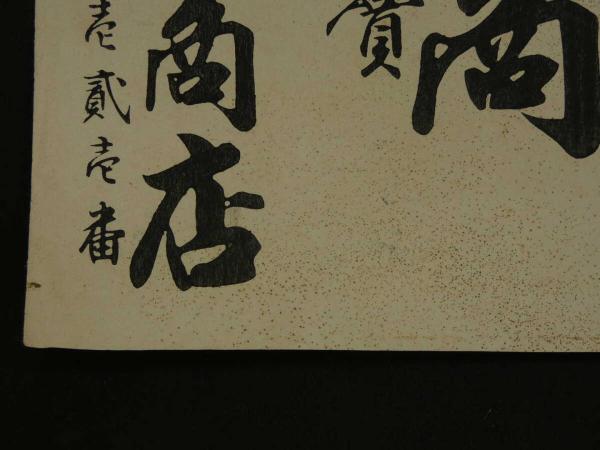 商
賀
商店
壱貳壱番